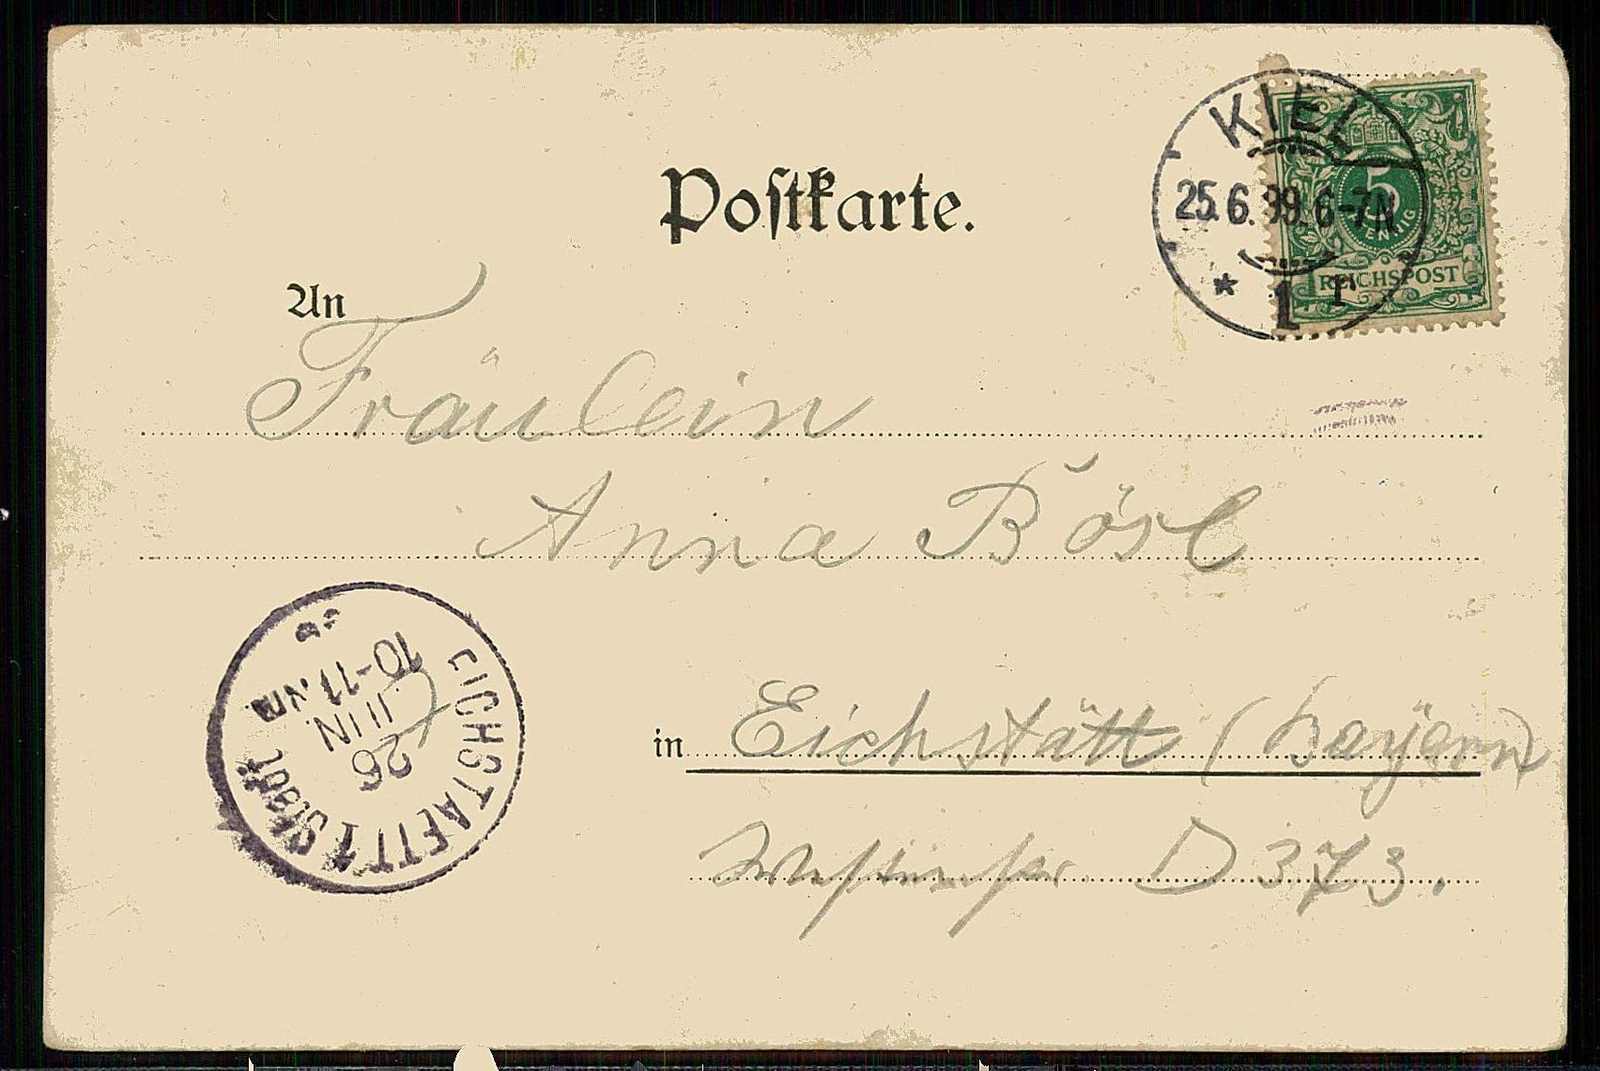 Postkarte.
KIEL
25.6.99.6-7N
* 1 I.
5
PFENNIG
REICHSPOST
An
Fräulein
Anna Bösl
in Eichstätt (Bayern)
D 373.
EICHSTAETT Stadt
26
JUN
10-11.Vm